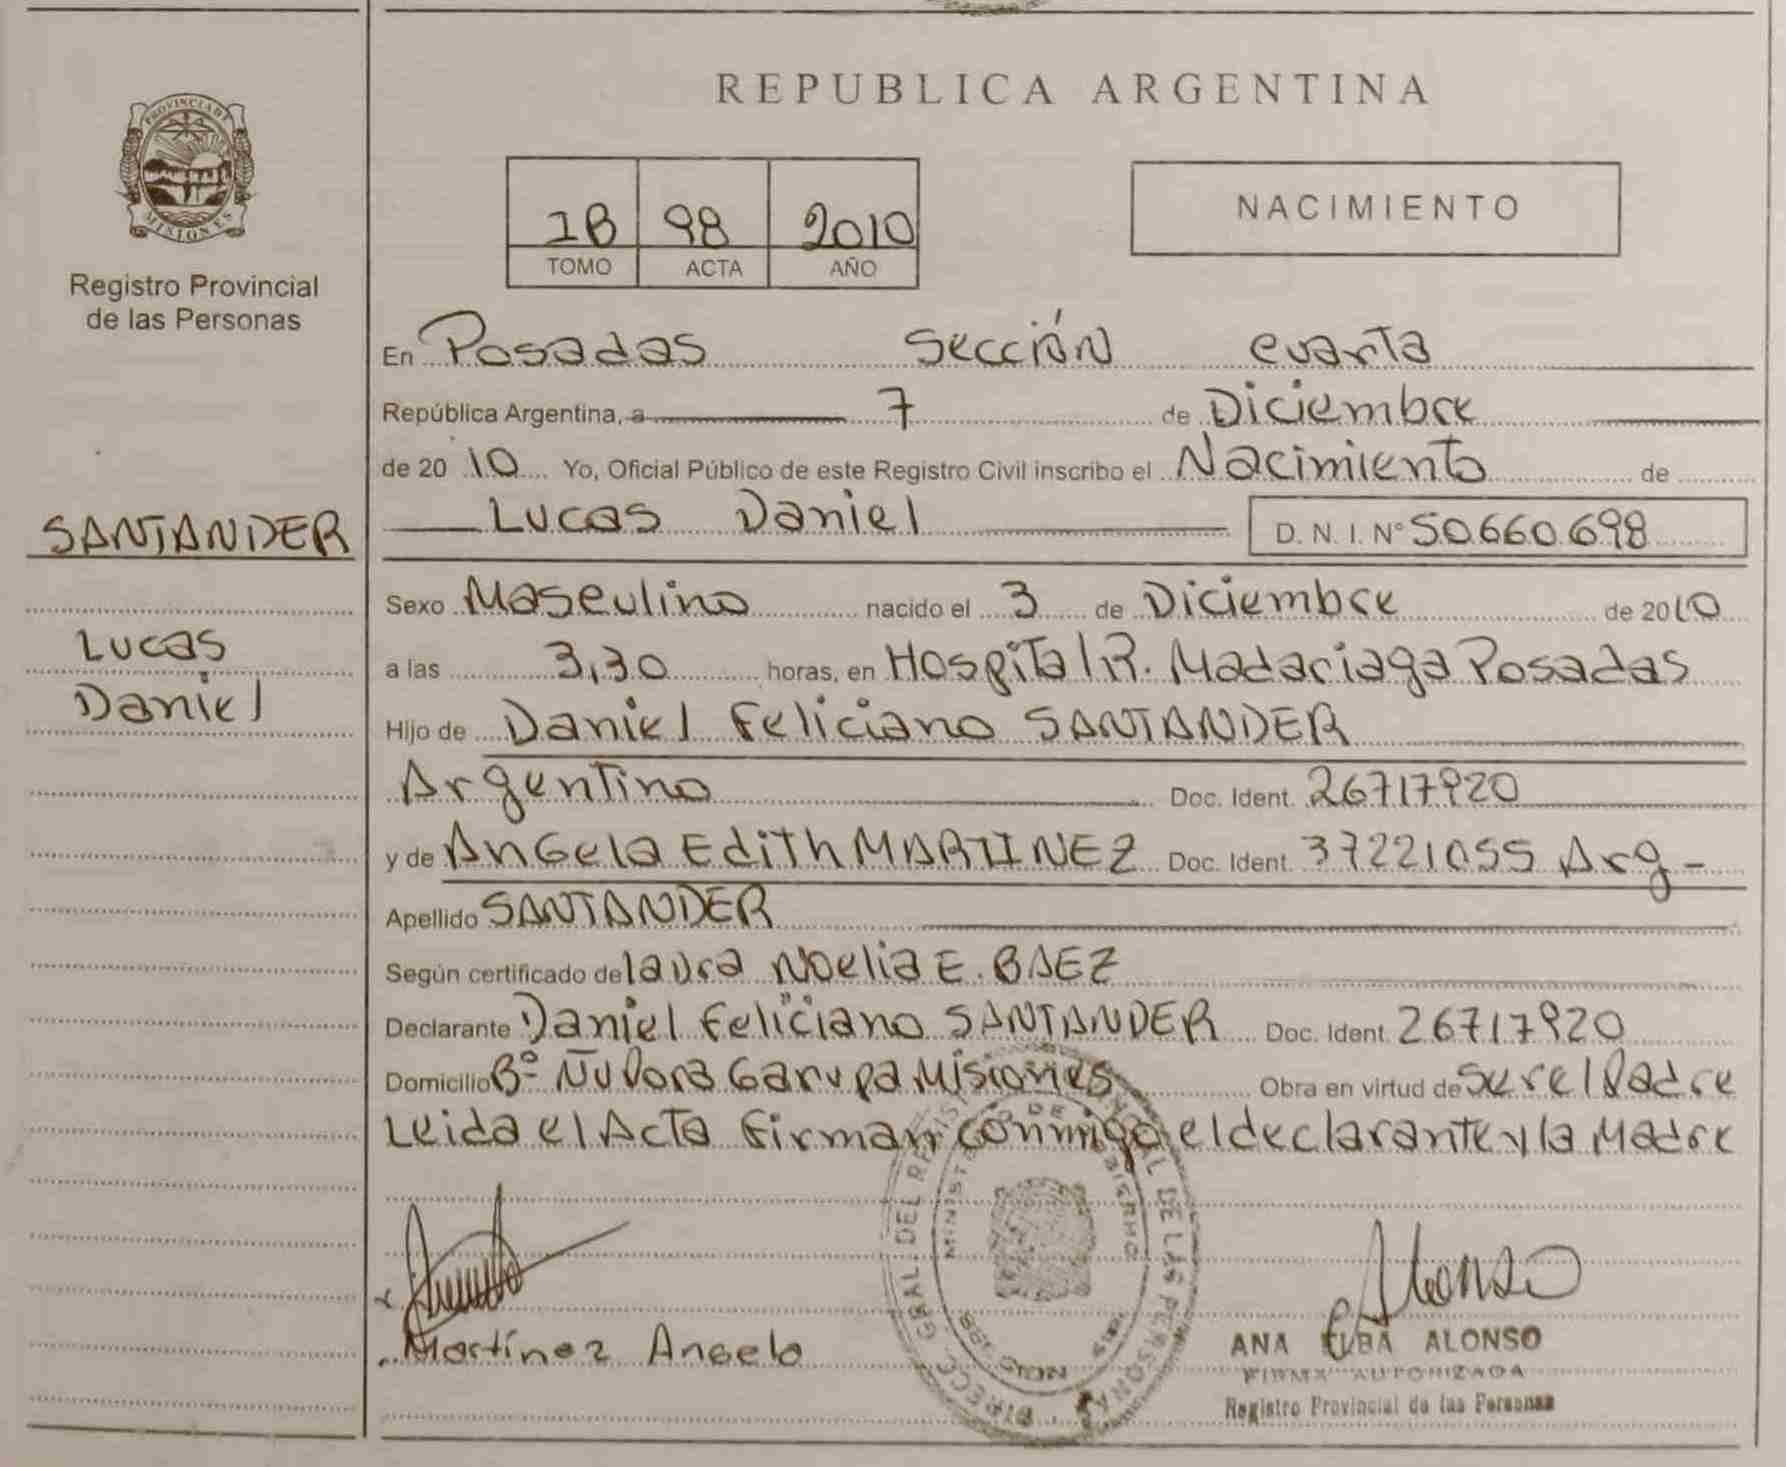 PROVINCIA DE
MISIONES
Registro Provincial
de las Personas
SANTANDER
Lucas
Daniel
REPUBLICA ARGENTINA
1B 98 2010
TOMO ACTA AÑO
NACIMIENTO
En Posadas Sección cuarta
República Argentina, a 7 de Diciembre
de 2010 Yo, Oficial Público de este Registro Civil inscribo el Nacimiento de
Lucas Daniel D. N. I. N° 50.660.698
Sexo Masculino nacido el 3 de Diciembre de 2010
a las 3,30 horas, en Hospital R. Madariaga Posadas
Hijo de Daniel Feliciano SANTANDER
Argentino Doc. Ident. 26717920
y de Angela Edith MARTINEZ Doc. Ident. 37221055 Arg-
Apellido SANTANDER
Según certificado de laura Noelia E. BAEZ
Declarante Daniel Feliciano SANTANDER Doc. Ident. 26717920
Domicilio Bº Ñu Pora Garupa Misiones Obra en virtud de ser el Padre
Leida el Acta firman conmigo el declarante y la Madre
Martínez Angela
Alonso
ANA ELBA ALONSO
FIRMA AUTORIZADA
Registro Provincial de las Personas
DIRECC. GRAL. DEL REGIST DE LAS PERSONAS
MINISTERIO DE GOBIERNO